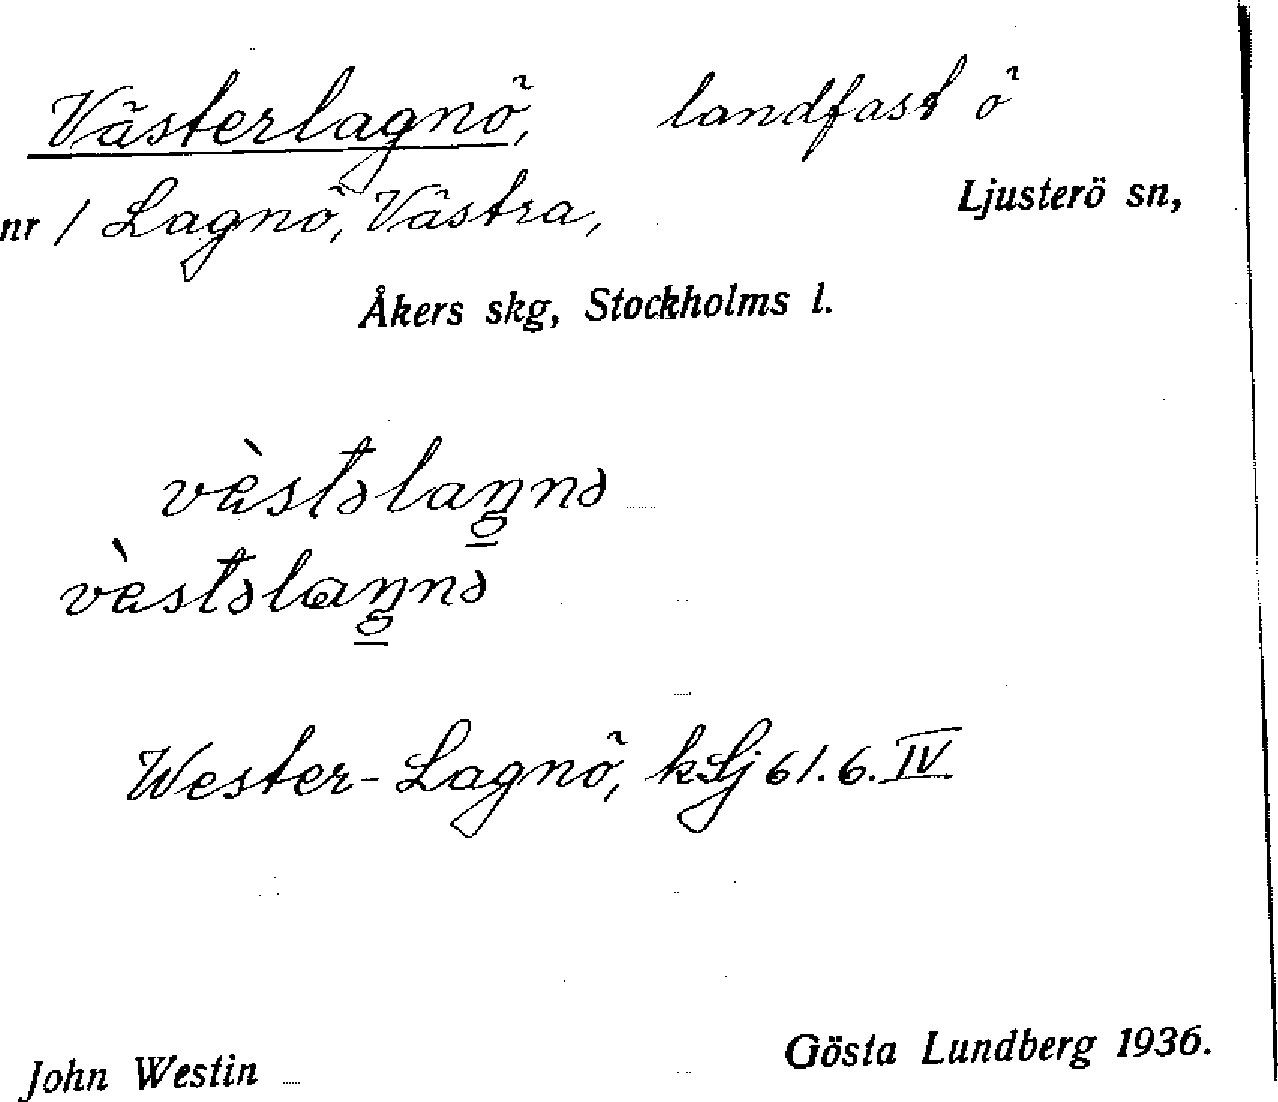 Västerlagnö, landfast ö
nr / Lagnö, Västra, Ljusterö sn,
Åkers skg, Stockholms l.
vὲstəlaŋnə
vὲstəlaŋnə
Wester-Lagnö, kLj 61.6.IV.
John Westin Gösta Lundberg 1936.